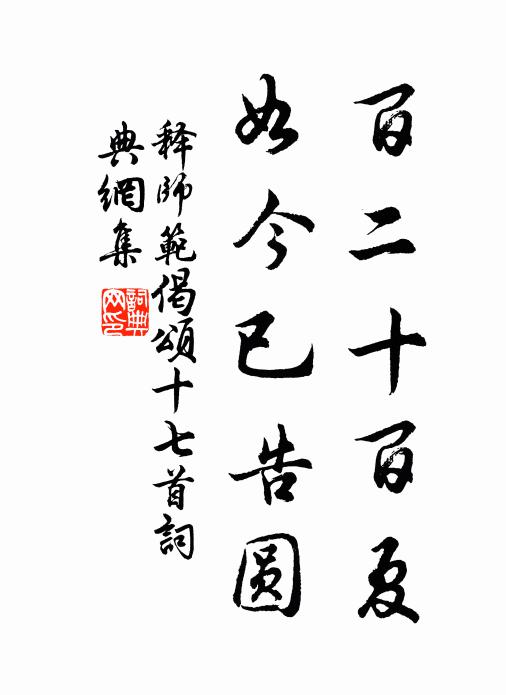 百二十百夏
如今已告圆
释师範偈頌十七首詞
典網集
詞典網印